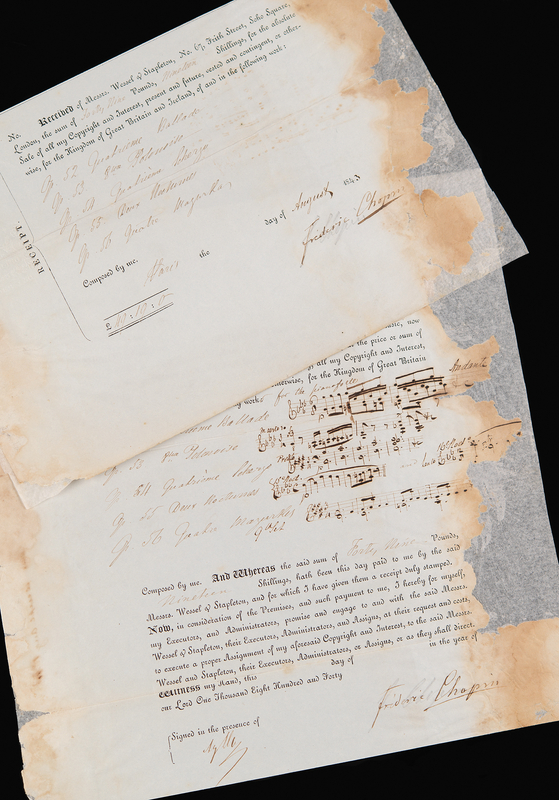 No.
Received of Messrs. Wessel & Stapleton, No. 67, Frith Street, Soho Square,
London, the sum of Forty Nine Pounds, Nineteen Shillings, for the absolute
Sale of all my Copyright and Interest, present and future, vested and contingent, or other-
wise, for the Kingdom of Great Britain and Ireland, of and in the following work;
Op 52 Quatrieme Ballade
Op 53 8me Polonoise
Op 54 Quatrieme Scherzo
Op 55 Deux Nocturnes
Op 56 Quatre Mazurkas,
RECEIPT.
Composed by me.
Paris the day of August 184
Frédéric Chopin
£
music, now
the price or sum of
all my Copyright and Interest,
otherwise, for the Kingdom of Great Britain
work: for the pianoforte
Andante
Ballade
53 8me Polonoise
Op 54 Quatrieme Scherzo
Op 55 Deux Nocturnes
Op 56 Quatre Mazurkas
Composed by me. And Whereas the said sum of Forty Nine Pounds,
Nineteen Shillings, hath been this day paid to me by the said
Messrs. Wessel & Stapleton, and for which I have given them a receipt duly stamped.
Now, in consideration of the Premises, and such payment to me, I hereby for myself,
my Executors, and Administrators, promise and engage to and with the said Messrs.
Wessel & Stapleton, their Executors, Administrators, and Assigns, at their request and costs,
to execute a proper Assignment of my aforesaid Copyright and Interest, to the said Messrs.
Wessel and Stapleton, their Executors, Administrators, or Assigns, or as they shall direct.
Witness my Hand, this day of in the year of
our Lord One Thousand Eight Hundred and Forty
Frédéric Chopin
Signed in the presence of